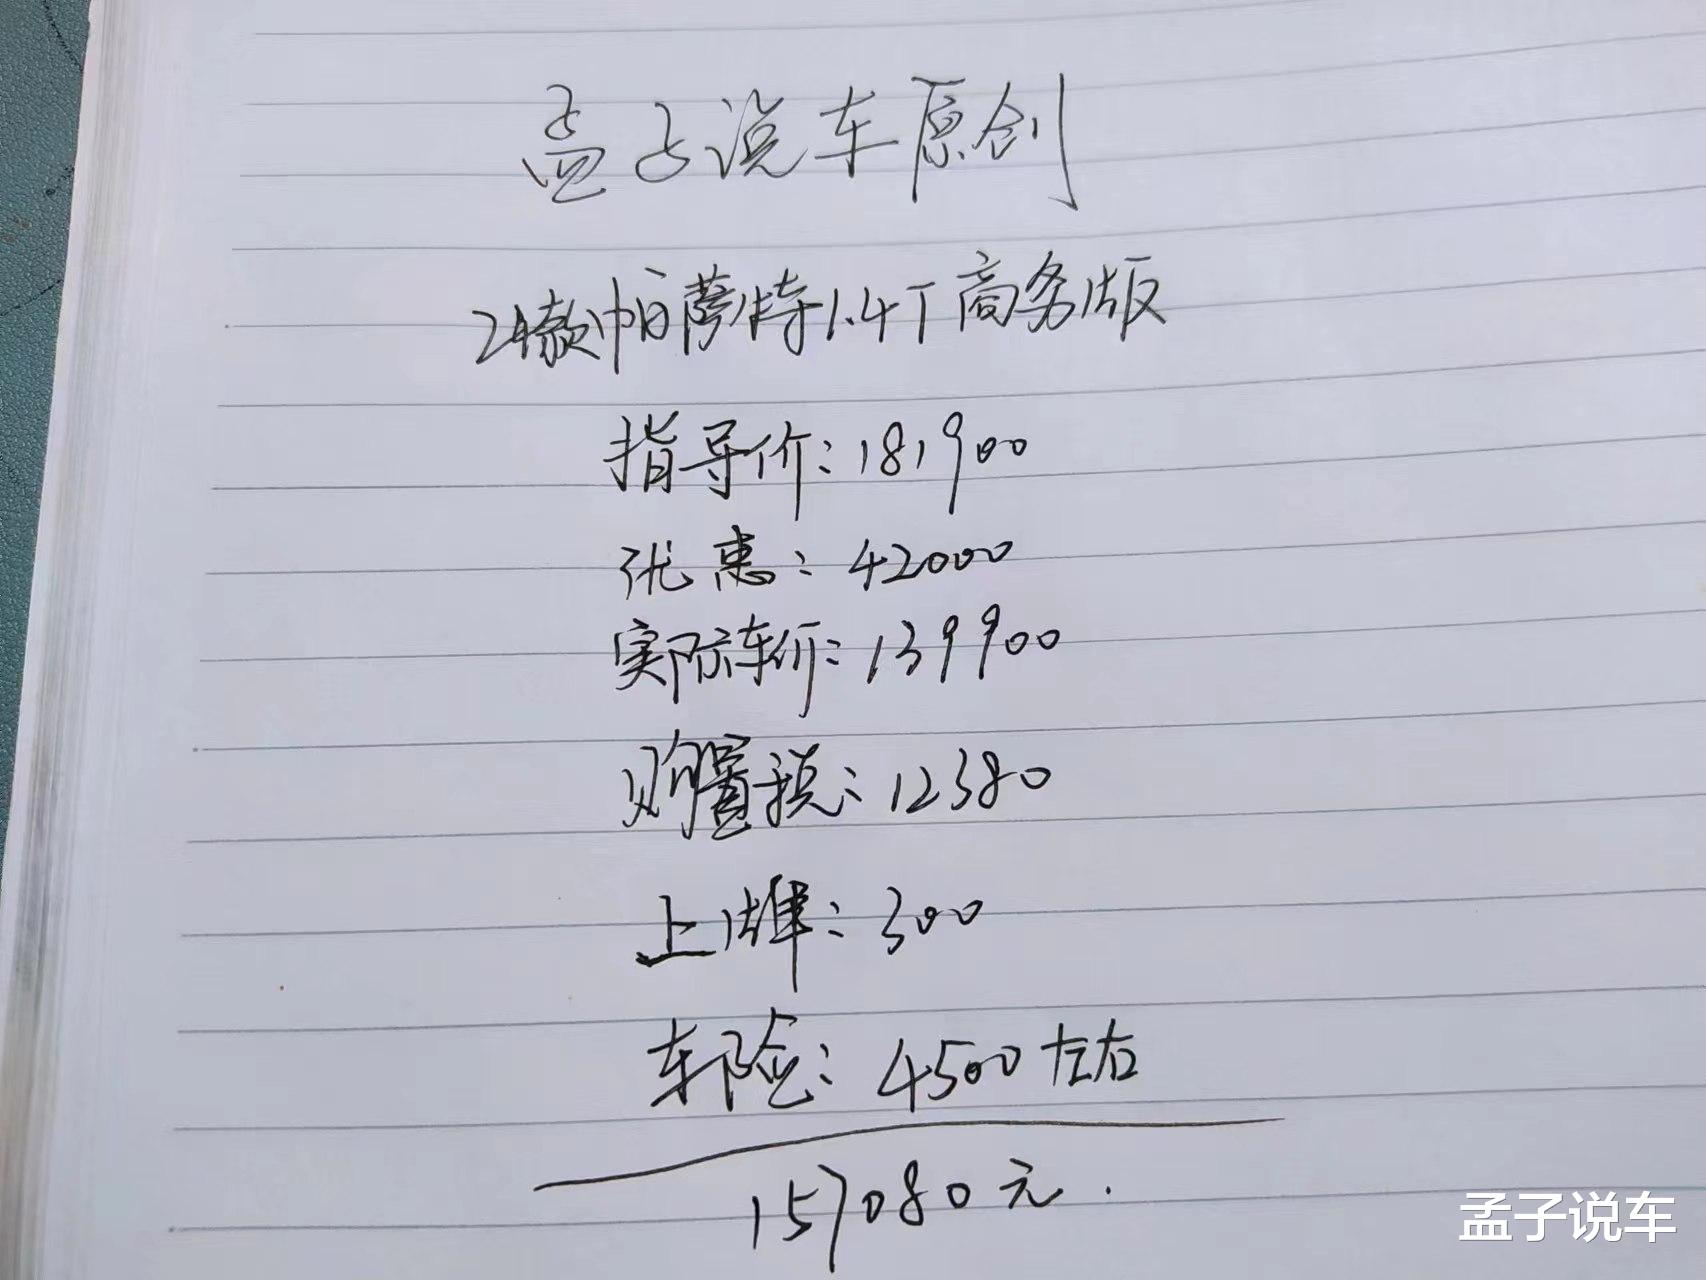 孟子说车原创
24款帕萨特1.4T商务版
指导价：181900
优惠：42000
实际车价：139900
购置税：12380
上牌：300
车险：4500左右
157080元.
孟子说车